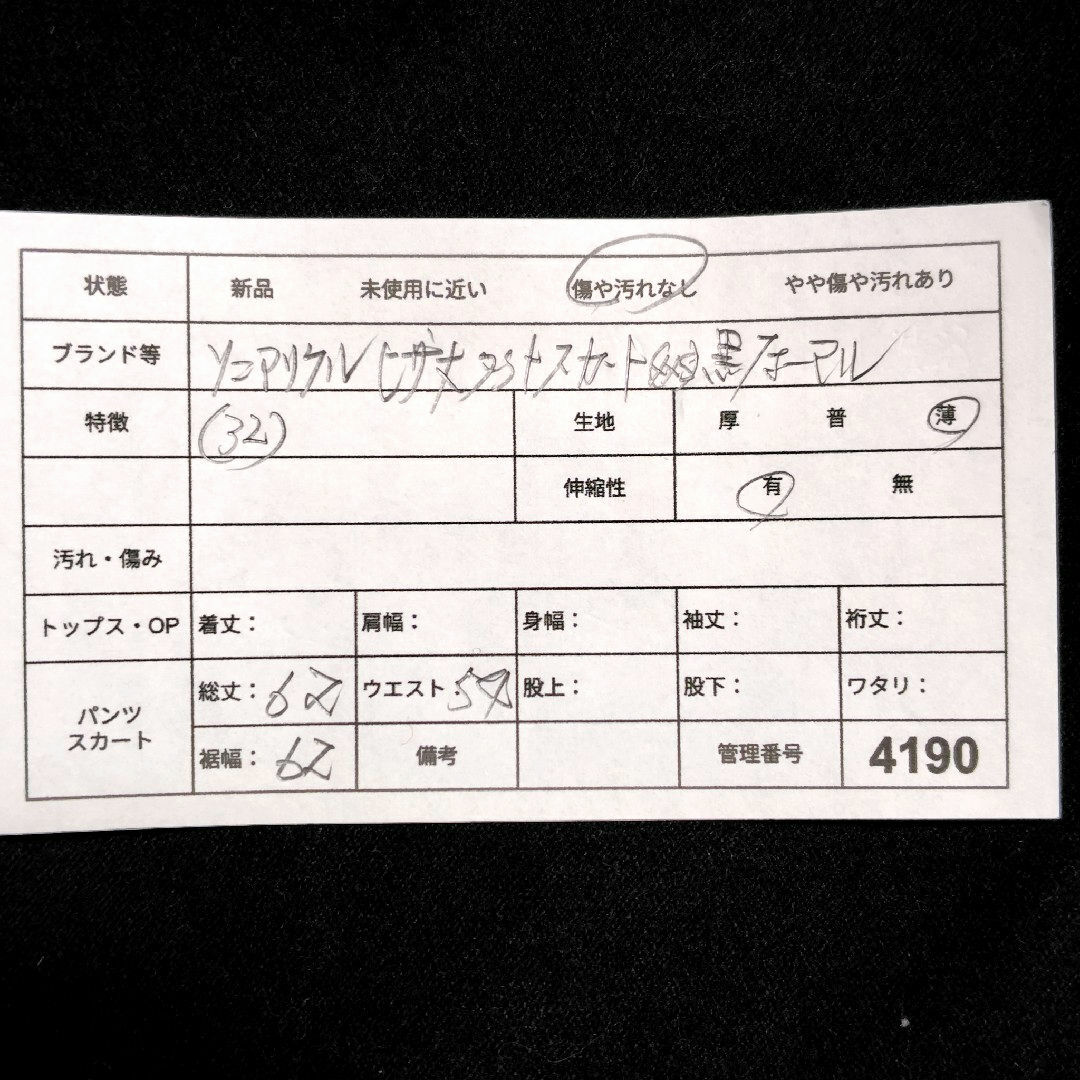 状態 新品 未使用に近い 傷や汚れなし やや傷や汚れあり
ブランド等 ソニアリケル ヒザ丈 スカート 黒 フォーマル
特徴 (32) 生地 厚 普 薄
伸縮性 有 無
汚れ・傷み
トップス・OP 着丈: 肩幅: 身幅: 袖丈: 裄丈:
パンツ スカート 総丈: 62 ウエスト: 股上: 股下: ワタリ:
裾幅: 62 備考 管理番号 4190